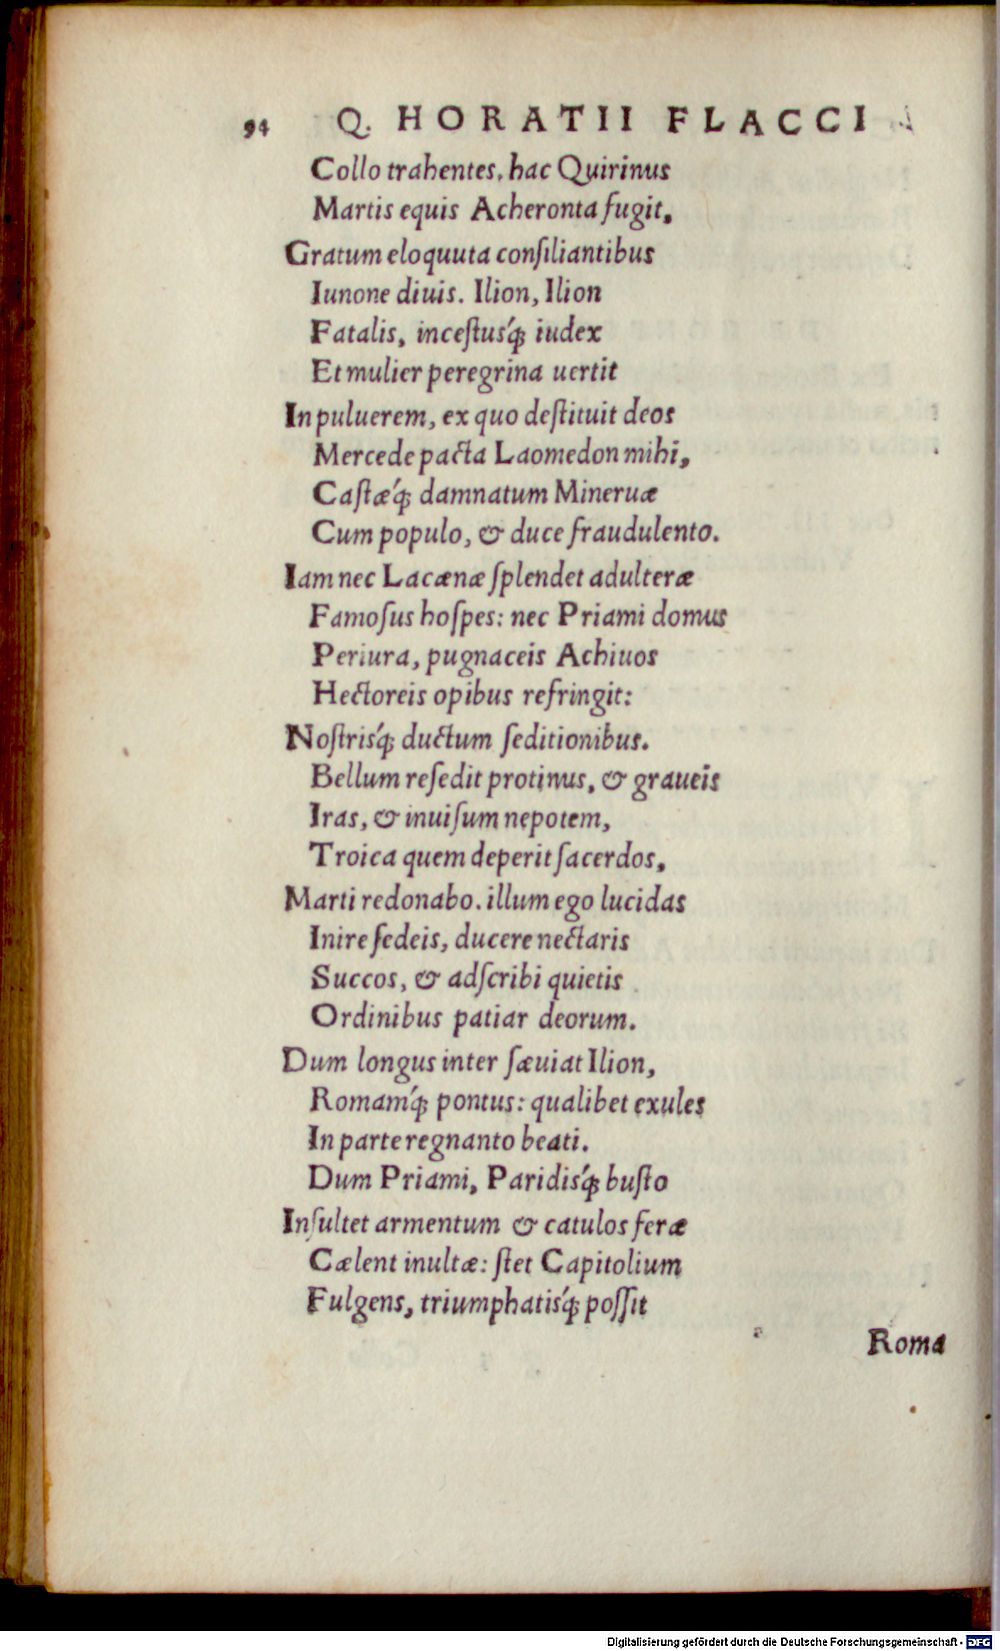 94 Q. HORATII FLACCI
Collo trahentes, hac Quirinus
Martis equis Acheronta fugit,
Gratum eloquuta conſiliantibus
Iunone diuis. Ilion, Ilion
Fatalis, inceſtusq́; iudex
Et mulier peregrina uertit
In puluerem, ex quo deſtituit deos
Mercede pacta Laomedon mihi,
Caſtæq́; damnatum Mineruæ
Cum populo, & duce fraudulento.
Iam nec Lacænæ ſplendet adulteræ
Famoſus hoſpes: nec Priami domus
Periura, pugnaceis Achiuos
Hectoreis opibus refringit:
Noſtrisq́; ductum ſeditionibus.
Bellum reſedit protinus, & graueis
Iras, & inuiſum nepotem,
Troica quem deperit ſacerdos,
Marti redonabo. illum ego lucidas
Inire ſedeis, ducere nectaris
Succos, & adſcribi quietis
Ordinibus patiar deorum.
Dum longus inter ſæuiat Ilion,
Romamq́; pontus: qualibet exules
In parte regnanto beati.
Dum Priami, Paridisq́; buſto
Inſultet armentum & catulos feræ
Cælent inultæ: ſtet Capitolium
Fulgens, triumphatisq́; poſſit
Roma
Digitalisierung gefördert durch die Deutsche Forschungsgemeinschaft - DFG